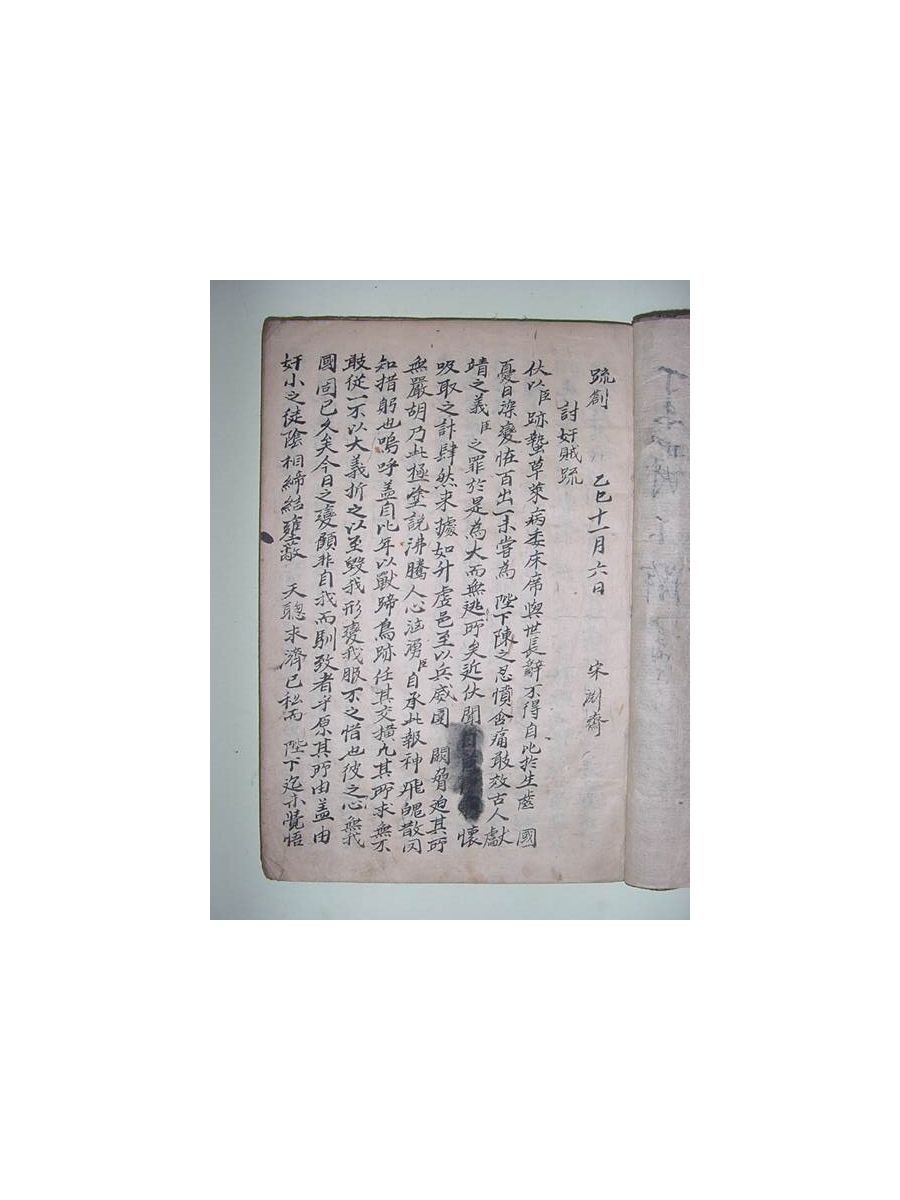 疏劄 乙巳十一月六日 宋淵齋
討奸賊疏
伏以臣跡蟄草萊病委床席與世長辭不得自比於生齒 國
憂日深變恠百出一未嘗為 陛下陳之忍憤含痛敢效古人獻
靖之義臣之罪於是為大而無逃所矣近伏聞 懷
吸取之計肆然來據如升虛邑至以兵威圍 闕脅迫其所
無嚴胡乃此極塗說沸騰人心洶湧臣自承此報神飛魄散罔
知措躬也嗚呼盖自比年以獸蹄鳥跡任其交橫凡其所求無不
敢從一不以大義折之以至毀我形變我服不之惜也彼之心無我
國固已久矣今日之變顧非自我而馴致者乎原其所由盖由
奸小之徒陰相締結壅蔽 天聰求濟已私而 陛下迄未覺悟